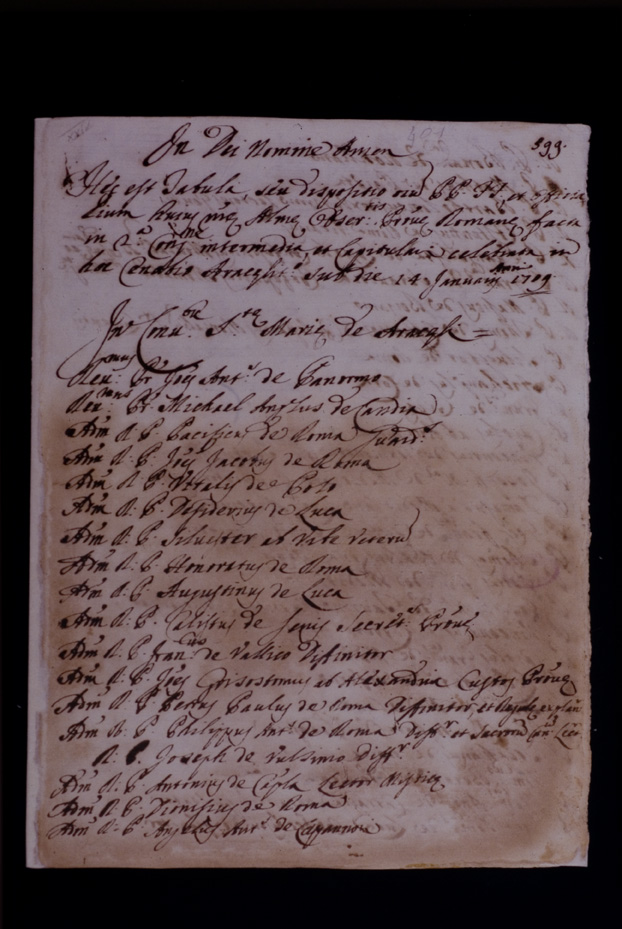 599.
In Dei Nomine Amen
Hęc est Tabula, seu dispositio oium PP. FF. et
lium huius Almę Obser:tis Prouę Romanę facta
in 2.a Cong:ne intermedia, et Capitulari celebrata in
hoc Cenobio Aracęlit.o sub die 14 Januarij Anni 1709
In Conu:tu S.tę Marię de Aracęli =
Reu:mus Pr. Joēs Ant.s de Panormo
Reu:mus Pr. Michael Angelus de Candia
Adm R: P: Pacificus de Roma Guard.s
Adm R: P: Joēs Jacobus de Roma
Adm R: P: Vitalis de
Adm R: P: Desiderius de Luca
Adm R: P: Siluester ab Vrbe Veteru
Adm R: P: Honoratus de Roma
Adm R: P: Augustinus de Luca
Adm R: P: Calistus de Senis Secret.s Prouę
Adm R: P: Fran:cus de Vallico Diffinitor
Adm R: P: Joēs Grisostomus ab Alexandria Custos Prouę
Adm R: P: Petrus Paulus de Roma Diffinitor, et
Adm R: P: Philippus Ant.s de Roma Diff.r et
R: P. Joseph de Diff.r
Adm R: P: Antonius de Lector
Adm R: P: Dionisius de Roma
Adm R: P: Angelus Ant.s de